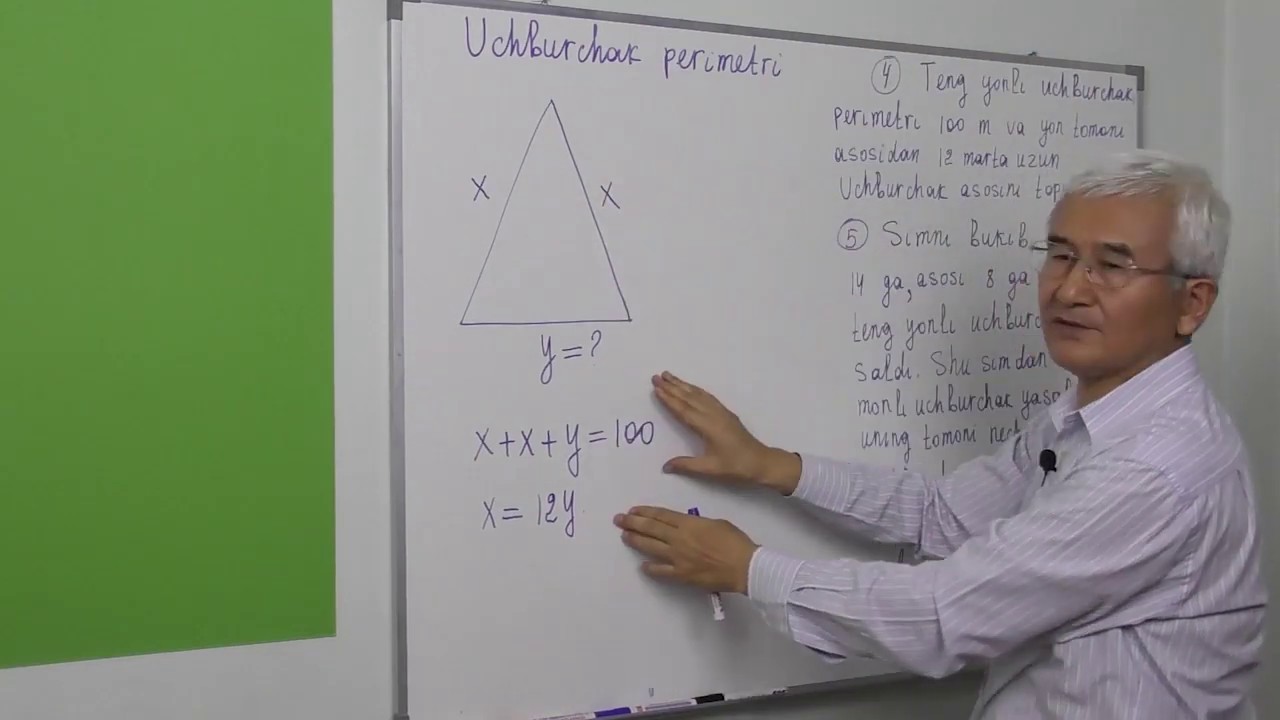 Uchburchak perimetri
x
x
y = ?
x + x + y = 100
x = 12y
④ Teng yonli uchburchak
perimetri 100 m va yon tomoni
asosidan 12 marta uzun
Uchburchak asosini top
⑤ Simni bukib
14 ga, asosi 8 ga
teng yonli uchburc
saldi. Shu simdan
monli uchburchak yasal
uning tomoni nec